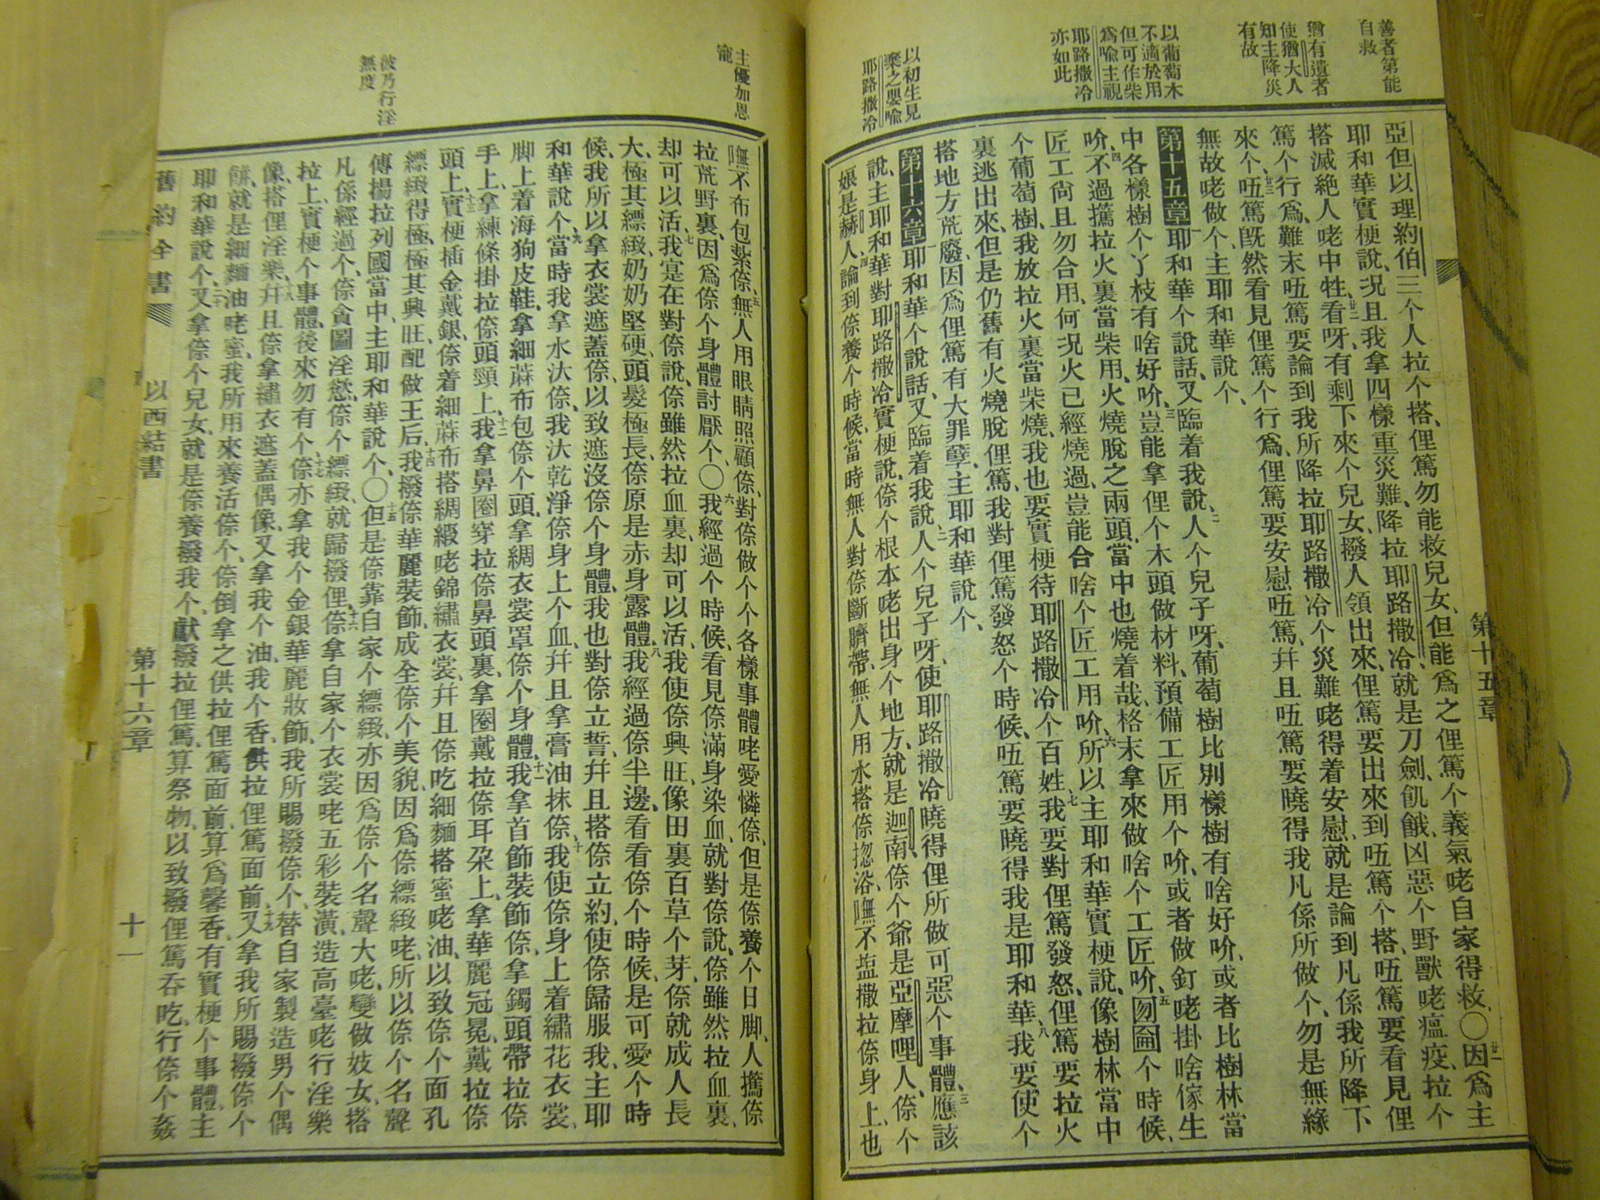 善者第能
自救
猶有遺者
使猶大人
知主降災
有故
以葡萄木
不適於用
但可作柴
爲喩主視
耶路撒冷
亦如此
以初生見
棄之嬰喩
耶路撒冷
第十五章
亞但以理約伯三个人拉个搭俚篤勿能救兒女但能爲之俚篤个義氣咾自家得救〇因爲主
耶和華實梗說况且我拿四樣重災難降拉耶路撒冷就是刀劍飢餓凶惡个野獸咾瘟疫拉个
搭滅絕人咾中牲看呀有剩下來个兒女撥人領出來俚篤要出來到㕶篤个搭㕶篤要看見俚
篤个行爲難末㕶篤要論到我所降拉耶路撒冷个災難咾得着安慰就是論到凡係我所降下
來个㕶篤旣然看見俚篤个行爲俚篤要安慰㕶篤幷且㕶篤要曉得我凡係所做个勿是無緣
無故咾做个主耶和華說个
第十五章耶和華个說話又臨着我說人个兒子呀葡萄樹比別樣樹有啥好吤或者比樹林當
中各樣樹个丫枝有啥好吤豈能拿俚个木頭做材料預備工匠用个吤或者做釘咾掛啥傢生
吤不過攜拉火裏當柴用火燒脫之兩頭當中也燒着哉格末拿來做啥个工匠吤勿圇个時候
匠工尙且勿合用何况火已經燒過豈能合啥个匠工用吤所以主耶和華實梗說像樹林當中
个葡萄樹我放拉火裏當柴燒我也要實梗待耶路撒冷个百姓我要對俚篤發怒俚篤要拉火
裏逃出來但是仍舊有火燒脫俚篤我對俚篤發怒个時候㕶篤要曉得我是耶和華我要使个
搭地方荒廢因爲俚篤有大罪孽主耶和華說个
第十六章耶和華个說話又臨着我說人个兒子呀使耶路撒冷曉得俚所做可惡个事體應該
說主耶和華對耶路撒冷實梗說倷个根本咾出身个地方就是迦南倷个爺是亞摩哩人倷个
娘是赫人論到倷養个時候當時無人對倷斷臍帶無人用水搭倷㧾浴嘸不塩撒拉倷身上也
主優加恩
寵
彼乃行淫
無度
嘸不布包紮倷無人用眼睛照顧倷對倷做个个各樣事體咾愛憐倷但是倷養个日脚人攜倷
拉荒野裏因爲倷个身體討厭个〇我經過个時候看見倷滿身染血就對倷說倷雖然拉血裏
却可以活我寔在對倷說倷雖然拉血裏却可以活我使倷興旺像田裏百草个芽倷就成人長
大極其縹緻奶奶堅硬頭髮極長倷原是赤身露體我經過倷半邊看看倷个時候是可愛个時
候我所以拿衣裳遮蓋倷以致遮沒倷个身體我也對倷立誓幷且搭倷立約使倷歸服我主耶
和華說个當時我拿水汏倷我汏乾淨倷身上个血幷且拿膏油抹倷我使倷身上着繡花衣裳
脚上着海狗皮鞋拿細蔴布包倷个頭拿綢衣裳罩倷个身體我拿首飾裝飾倷拿鐲頭帶拉倷
手上拿練條掛拉倷頭頸上我拿鼻圈穿拉倷鼻頭裏拿圈戴拉倷耳朵上拿華麗冠冕戴拉倷
頭上實梗插金戴銀倷着細蔴布搭綢緞咾錦繡衣裳幷且倷吃細麵搭蜜咾油以致倷个面孔
縹緻得極極其興旺配做王后我撥倷華麗裝飾成全倷个美貌因爲倷縹緻咾所以倷个名聲
傳揚拉列國當中主耶和華說个〇但是倷靠自家个縹緻亦因爲倷个名聲大咾變做妓女搭
凡係經過个倷貪圖淫慾倷个縹緻就歸撥俚倷拿自家个衣裳咾五彩裝潢造高臺咾行淫樂
拉上實梗个事體後來勿有个倷亦拿我个金銀華麗妝飾我所賜撥倷个替自家製造男个偶
像搭俚淫樂幷且倷拿繡衣遮蓋偶像又拿我个油我个香供拉俚篤面前又拿我所賜撥倷个
餅就是細麵油咾蜜我所用來養活倷个倷倒拿之供拉俚篤面前算爲馨香有實梗个事體主
耶和華說个又拿倷个兒女就是倷養撥我个獻撥拉俚篤算祭物以致撥俚篤吞吃行倷个姦
舊約全書
以西結書
第十六章
十一